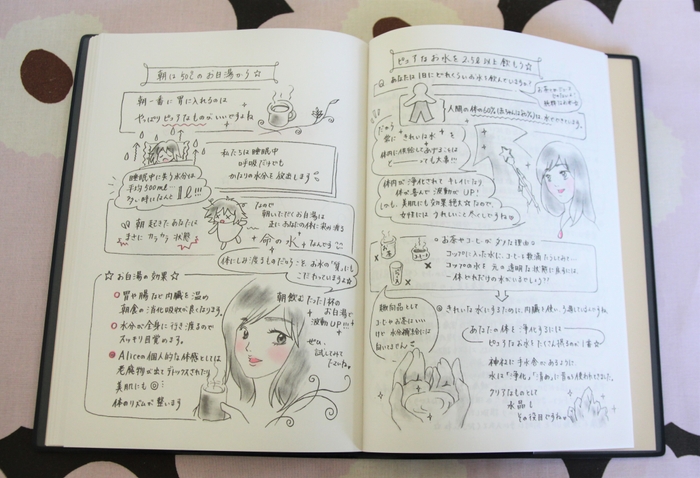 朝は50℃のお白湯から☆
朝一番に胃に入れるのは
やっぱりピュアなものがいいですよね
私たちは睡眠中
呼吸だけでも
かなりの水分を放出します
睡眠中に失う水分は
平均500ml
多い時になんと1ℓ!!!
朝起きたあなたは
まさにカラカラ状態
なので
朝いただくお白湯は
正にあなたの体に染み渡る
命の水なんです
体にしみ渡るものだから、お水の「質」にも
こだわっていますよ
☆お白湯の効果☆
胃や腸など内臓を温め
朝食の消化吸収が良くなります。
水分が全身に行き渡るので
スッキリ目覚めます。
Aliceの個人的な体感としては
老廃物が出てデトックスされたり
美肌にも◎
体のリズムが整います
朝飲むたった1杯の
お白湯で
波動UP!!!
ぜひ、
試してみて
下さいね。
ピュアなお水を2.5ℓ以上飲もう☆
Qあなたは1日にどれくらいお水を飲んでいますか?
人間の体の60%(赤ちゃんは80%)は、水でできています。
だから
常にきれいな水を
体内に供給してあげることは
と——っても大事!!!
体内が浄化されてキレイになり
体が喜んで波動がUP!
しかも、美肌にも効果絶大☆なので
女性にはうれしいこと尽くしですね
お茶やコーヒーがダメな理由
コップに入った水に、コーヒーを数滴たらしてみて…
コップの水を元の透明な状態に戻すには、
一体どれだけの水がいるでしょう??
嗜好品として
コーヒーやお茶はいい
けど水分補給には
ならないので
きれいな水にするために内臓を使い、負担をかけているんですね。
あなたの体を浄化するには
ピュアなお水をたくさん摂るのが1番☆
神社に手水舎があるように
水は「浄化」「清め」に昔から使われてきました。
クリアなものとして
水晶も
その役目ですね